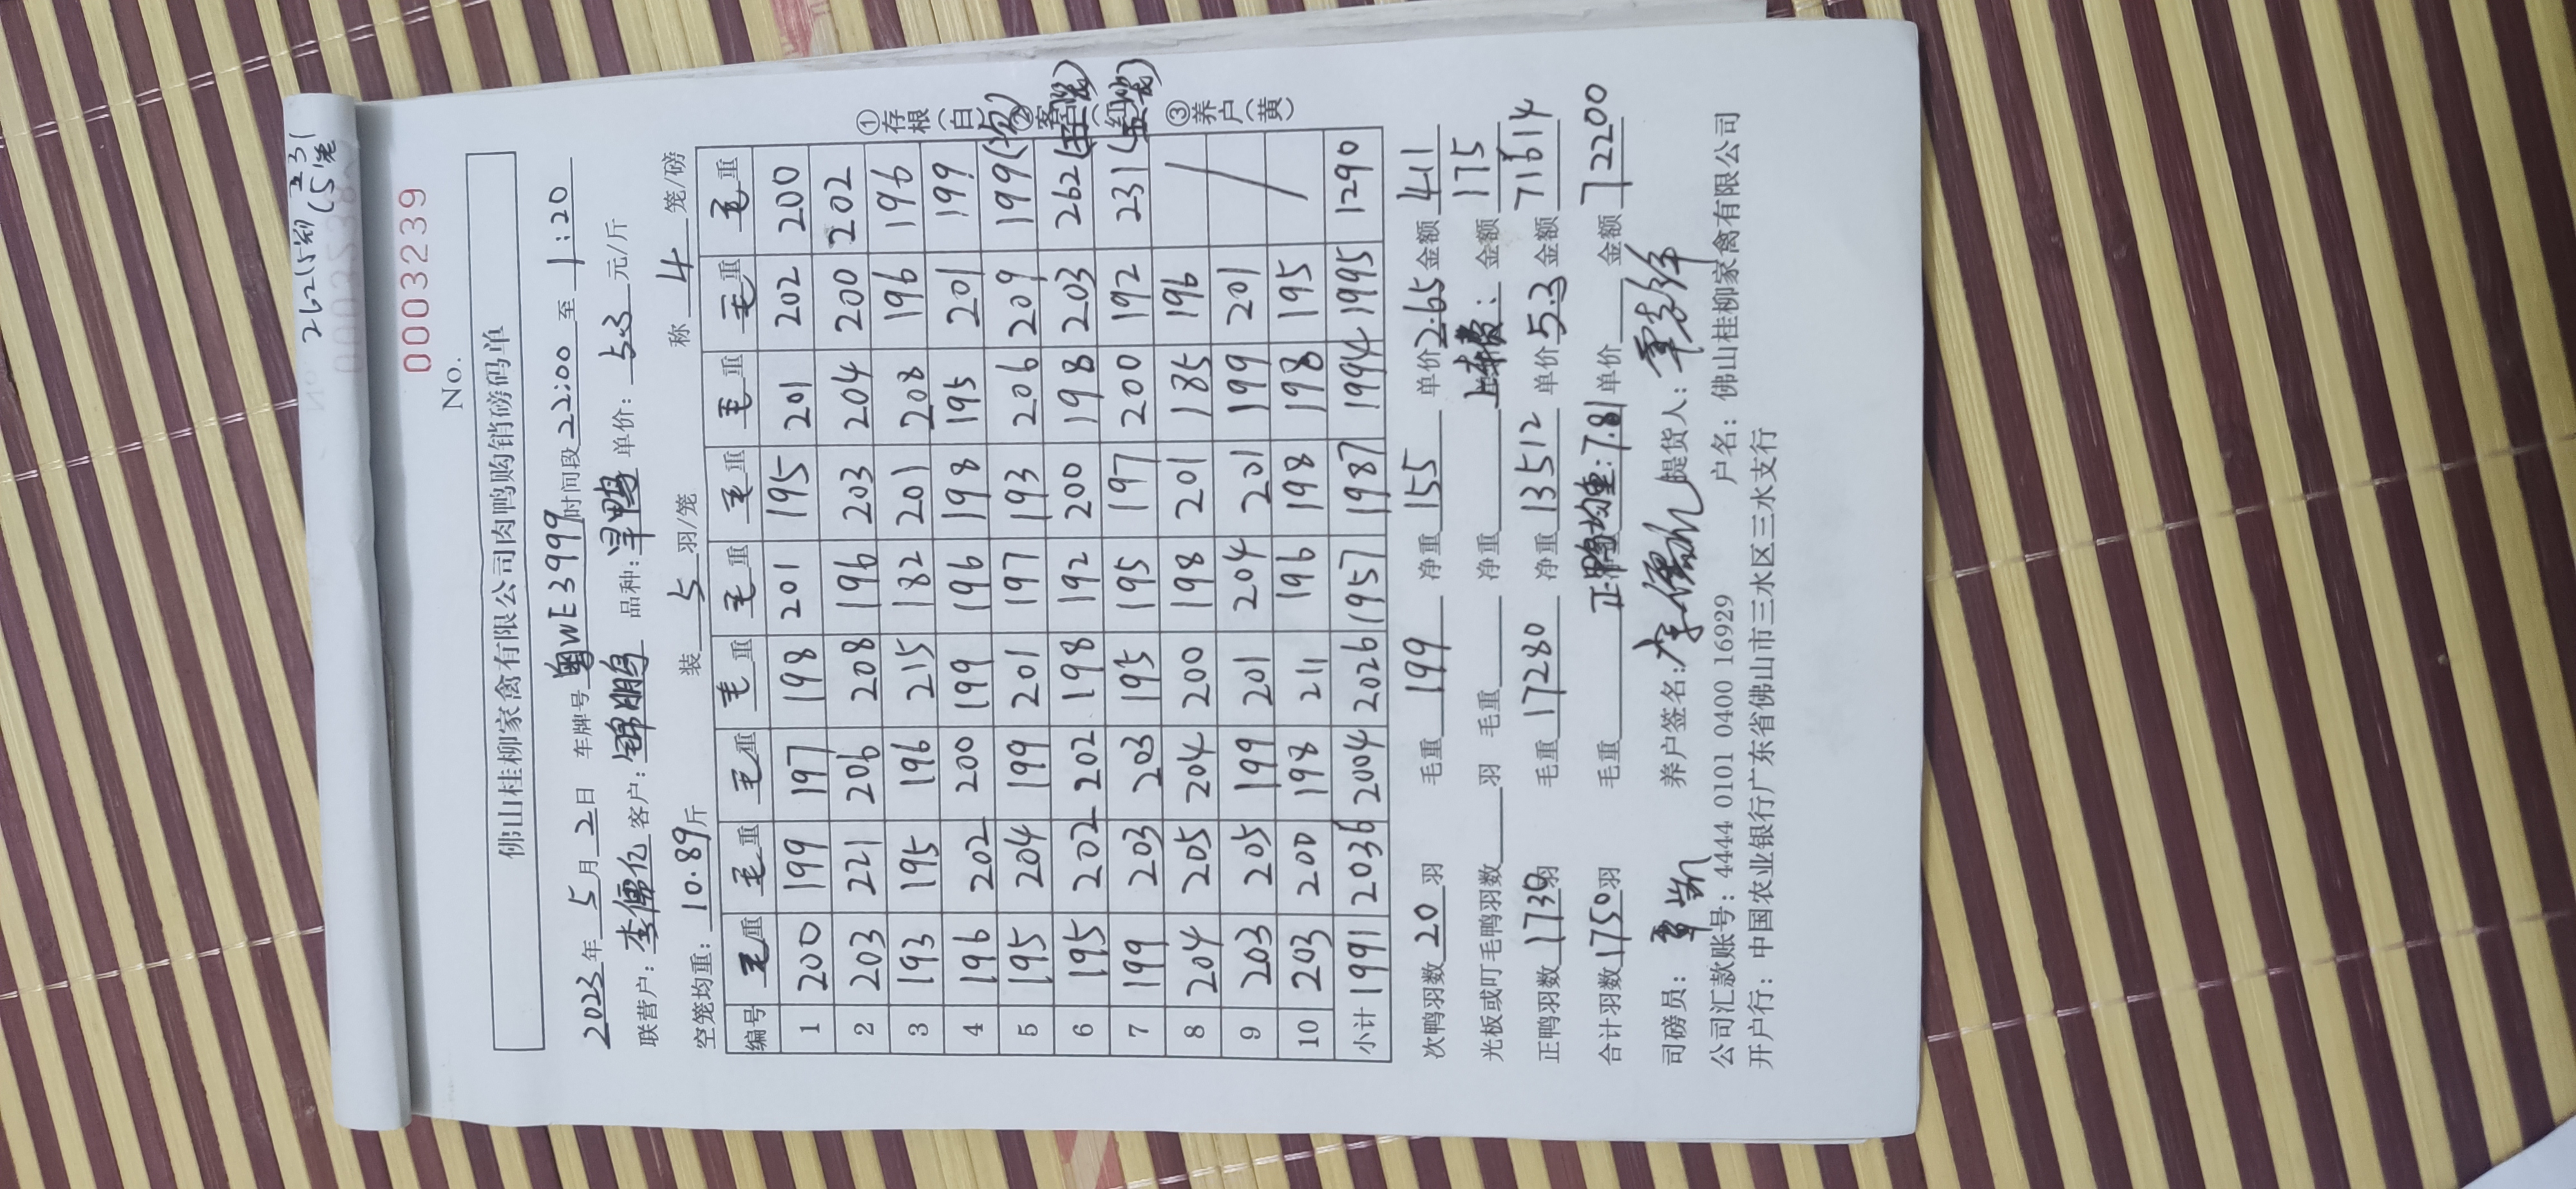 262(5笼
No. 0003239
佛山桂柳家禽有限公司肉鸭购销磅码单
2023年 5月 2日 车牌号 粤WE3999 时间段 22:00 至 1:20
联营户: 李儒亿 客户: 锦鹏 品种: 旱鸭 单价: 5.3 元/斤
空笼均重: 10.89 斤 装 5 羽/笼 称 4 笼/磅
编号 毛重 毛重 毛重 毛重 毛重 毛重 毛重 毛重 毛重
1 200 199 197 198 201 195 201 202 200
2 203 221 206 208 196 203 204 200 202
3 193 195 196 215 182 201 208 196 196
4 196 202 200 199 196 198 195 201 199
5 195 204 199 201 197 193 206 209 199
6 195 202 202 198 192 200 198 203 262
7 199 203 203 195 195 197 200 192 231
8 204 205 204 200 198 201 185 196
9 203 205 199 201 204 201 199 201
10 203 200 198 211 196 198 198 195
小计 1991 2036 2004 2026 1957 1987 1994 1995 1290
①存根(白)
②客
③养户(黄)
次鸭羽数 20 羽 毛重 199 净重 155 单价 2.65 金额 411
光板或叮毛鸭羽数 羽 毛重 净重 上车费: 金额 175
正鸭羽数 1730 羽 毛重 17280 净重 13512 单价 5.3 金额 71614
合计羽数 1750 羽 毛重 正鸭均重:7.81 单价 金额 72200
司磅员: 养户签名: 李儒亿 提货人:
公司汇款账号: 4444 0101 0400 16929 户名: 佛山桂柳家禽有限公司
开户行: 中国农业银行广东省佛山市三水区三水支行